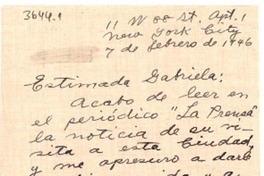 3644.1
11 W 88 St. Apt. 1
New York City
7 de febrero de 1946
Estimada Gabriela:
Acabo de leer en
el periódico "La Prensa"
la noticia de su vi-
sita a esta Ciudad,
y me apresuro a darle